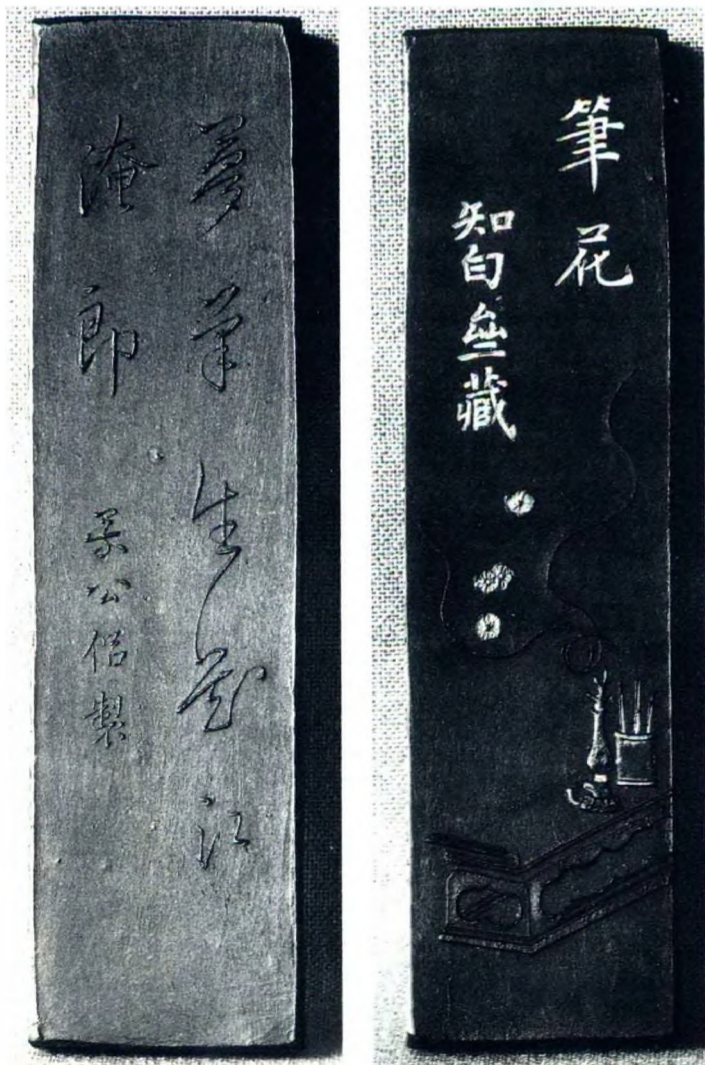 夢筆生花江
淹郎
葉公侶製
筆花
知白亝藏